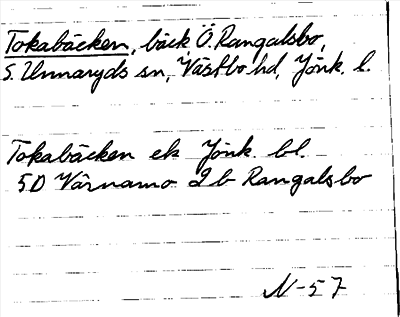 Tokabäcken, bäck, Ö. Rangalsbo,
S. Unnaryds sn, Västbo hd, Jönk. l.
Tokabäcken ek Jönk. bl.
5D Värnamo 2b Rangalsbo
N-57